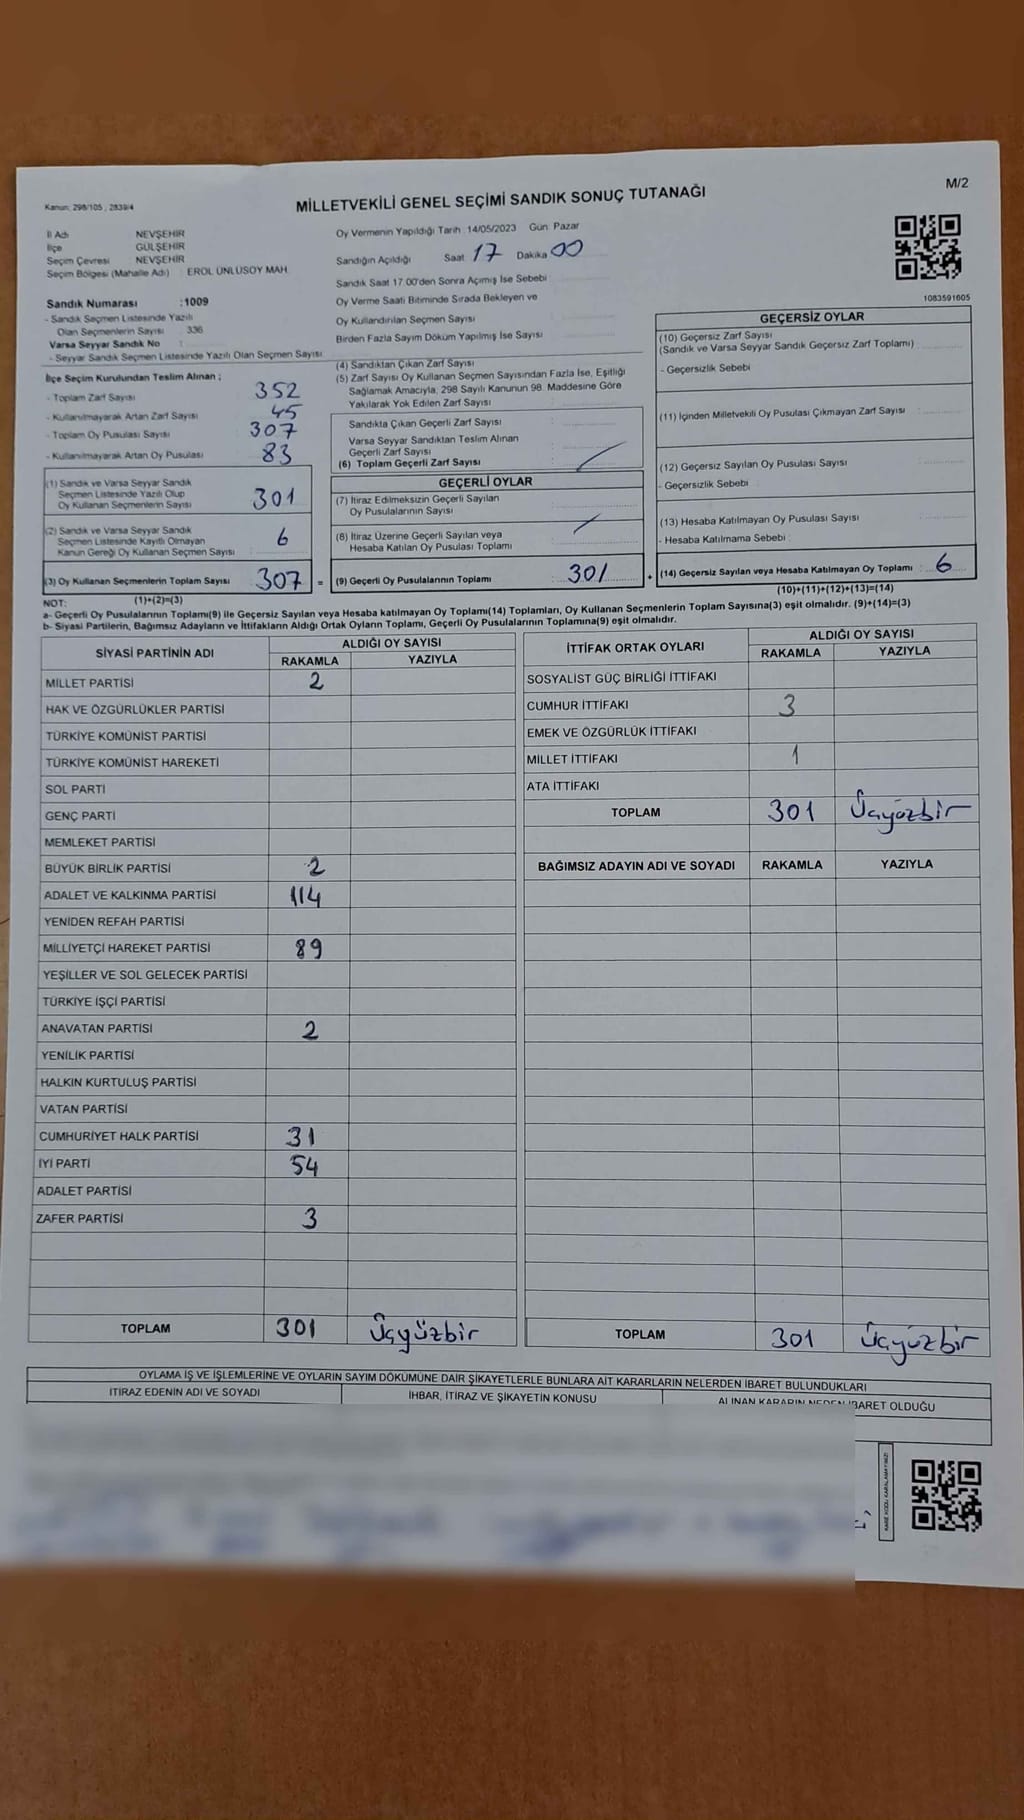 M/2
Kanun: 298/105 , 2839/4
MİLLETVEKİLİ GENEL SEÇİMİ SANDIK SONUÇ TUTANAĞI
İl Adı NEVŞEHİR
İlçe GÜLŞEHİR
Seçim Çevresi NEVŞEHİR
Seçim Bölgesi (Mahalle Adı) : EROL ÜNLÜSOY MAH.
Sandık Numarası :1009
- Sandık Seçmen Listesinde Yazılı
Olan Seçmenlerin Sayısı : 336
Varsa Seyyar Sandık No :
- Seyyar Sandık Seçmen Listesinde Yazılı Olan Seçmen Sayısı
İlçe Seçim Kurulundan Teslim Alınan ;
- Toplam Zarf Sayısı 352
- Kullanılmayarak Artan Zarf Sayısı 45
- Toplam Oy Pusulası Sayısı 307
- Kullanılmayarak Artan Oy Pusulası 83
(1) Sandık ve Varsa Seyyar Sandık
Seçmen Listesinde Yazılı Olup
Oy Kullanan Seçmenlerin Sayısı 301
(2) Sandık ve Varsa Seyyar Sandık
Seçmen Listesinde Kayıtlı Olmayan
Kanun Gereği Oy Kullanan Seçmen Sayısı 6
(3) Oy Kullanan Seçmenlerin Toplam Sayısı 307 =
(1)+(2)=(3)
Oy Vermenin Yapıldığı Tarih : 14/05/2023 Gün: Pazar
Sandığın Açıldığı Saat 17 Dakika 00
Sandık Saat 17.00'den Sonra Açımış İse Sebebi
Oy Verme Saati Bitiminde Sırada Bekleyen ve
Oy Kullandırılan Seçmen Sayısı
Birden Fazla Sayım Döküm Yapılmış İse Sayısı
(4) Sandıktan Çıkan Zarf Sayısı
(5) Zarf Sayısı Oy Kullanan Seçmen Sayısından Fazla İse, Eşitliği
Sağlamak Amacıyla, 298 Sayılı Kanunun 98. Maddesine Göre
Yakılarak Yok Edilen Zarf Sayısı
Sandıkta Çıkan Geçerli Zarf Sayısı
Varsa Seyyar Sandıktan Teslim Alınan
Geçerli Zarf Sayısı
(6) Toplam Geçerli Zarf Sayısı
GEÇERLİ OYLAR
(7) İtiraz Edilmeksizin Geçerli Sayılan
Oy Pusulalarının Sayısı
(8) İtiraz Üzerine Geçerli Sayılan veya
Hesaba Katılan Oy Pusulası Toplamı
(9) Geçerli Oy Pusulalarının Toplamı 301 +
1083591605
GEÇERSİZ OYLAR
(10) Geçersiz Zarf Sayısı
(Sandık ve Varsa Seyyar Sandık Geçersiz Zarf Toplamı)
- Geçersizlik Sebebi
(11) İçinden Milletvekili Oy Pusulası Çıkmayan Zarf Sayısı
(12) Geçersiz Sayılan Oy Pusulası Sayısı
- Geçersizlik Sebebi
(13) Hesaba Katılmayan Oy Pusulası Sayısı
- Hesaba Katılmama Sebebi :
(14) Geçersiz Sayılan veya Hesaba Katılmayan Oy Toplamı : 6
(10)+(11)+(12)+(13)=(14)
NOT:
a- Geçerli Oy Pusulalarının Toplamı(9) ile Geçersiz Sayılan veya Hesaba katılmayan Oy Toplamı(14) Toplamları, Oy Kullanan Seçmenlerin Toplam Sayısına(3) eşit olmalıdır. (9)+(14)=(3)
b- Siyasi Partilerin, Bağımsız Adayların ve İttifakların Aldığı Ortak Oyların Toplamı, Geçerli Oy Pusulalarının Toplamına(9) eşit olmalıdır.
SİYASİ PARTİNİN ADI ALDIĞI OY SAYISI
RAKAMLA YAZIYLA
MİLLET PARTİSİ 2
HAK VE ÖZGÜRLÜKLER PARTİSİ
TÜRKİYE KOMÜNİST PARTİSİ
TÜRKİYE KOMÜNİST HAREKETİ
SOL PARTİ
GENÇ PARTİ
MEMLEKET PARTİSİ
BÜYÜK BİRLİK PARTİSİ 2
ADALET VE KALKINMA PARTİSİ 114
YENİDEN REFAH PARTİSİ
MİLLİYETÇİ HAREKET PARTİSİ 89
YEŞİLLER VE SOL GELECEK PARTİSİ
TÜRKİYE İŞÇİ PARTİSİ
ANAVATAN PARTİSİ 2
YENİLİK PARTİSİ
HALKIN KURTULUŞ PARTİSİ
VATAN PARTİSİ
CUMHURİYET HALK PARTİSİ 31
İYİ PARTİ 54
ADALET PARTİSİ
ZAFER PARTİSİ 3
TOPLAM 301 Üçyüzbir
İTTİFAK ORTAK OYLARI ALDIĞI OY SAYISI
RAKAMLA YAZIYLA
SOSYALİST GÜÇ BİRLİĞİ İTTİFAKI
CUMHUR İTTİFAKI 3
EMEK VE ÖZGÜRLÜK İTTİFAKI
MİLLET İTTİFAKI 1
ATA İTTİFAKI
TOPLAM 301 Üçyüzbir
BAĞIMSIZ ADAYIN ADI VE SOYADI RAKAMLA YAZIYLA
TOPLAM 301 Üçyüzbir
OYLAMA İŞ VE İŞLEMLERİNE VE OYLARIN SAYIM DÖKÜMÜNE DAİR ŞİKAYETLERLE BUNLARA AİT KARARLARIN NELERDEN İBARET BULUNDUKLARI
İTİRAZ EDENİN ADI VE SOYADI İHBAR, İTİRAZ VE ŞİKAYETİN KONUSU ALINAN KARARIN NEDEN İBARET OLDUĞU